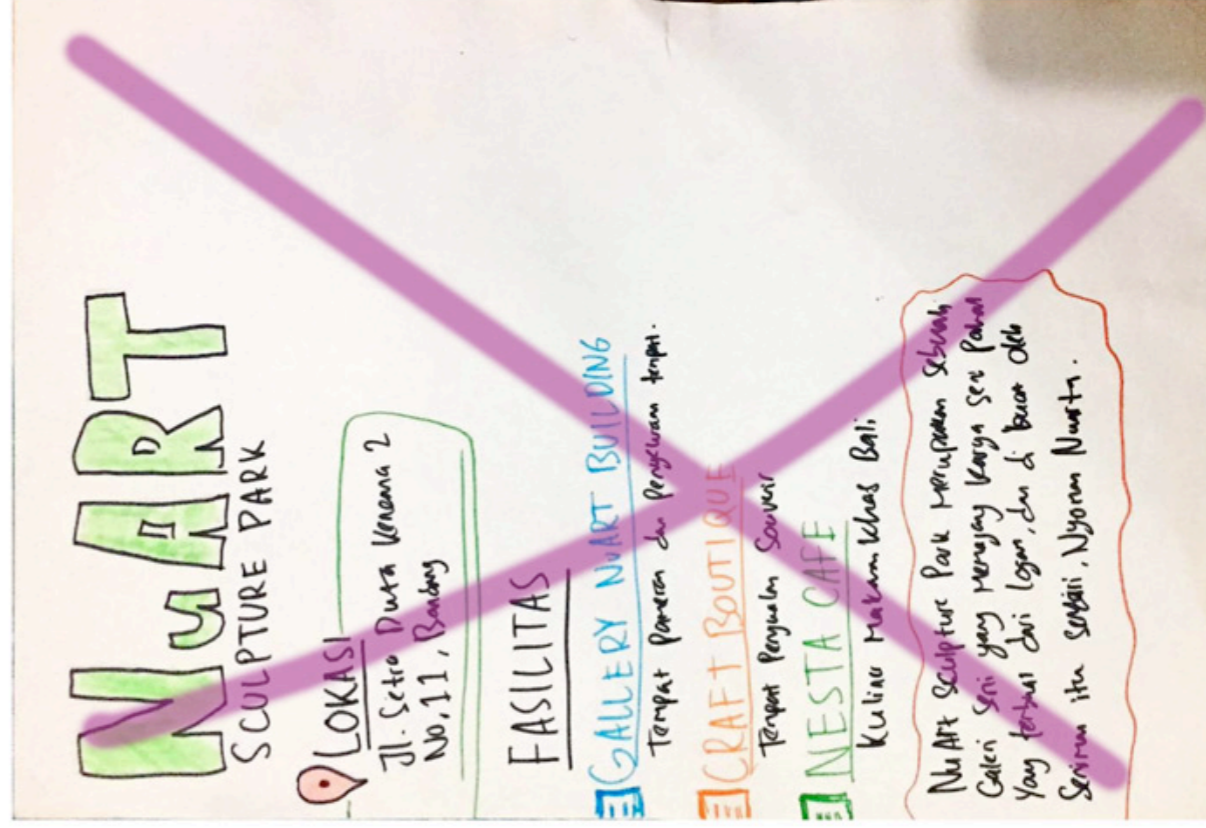 NuART
SCULPTURE PARK
LOKASI
Jl. Setra Duta Kencana 2
No. 11, Bandung
FASILITAS
GALLERY NuART BUILDING
Tempat Pameran dan Penyewaan tempat.
CRAFT BOUTIQUE
Tempat Penjualan Souvenir
NESTA CAFE
Kuliner Makanan Khas Bali
NuArt Sculpture Park Merupakan Sebuah
Galeri Seni yang Memajang Karya Seni Pahat
Yang terbuat dari logam, dan di buat oleh
Seniman itu sendiri, Nyoman Nuarta.